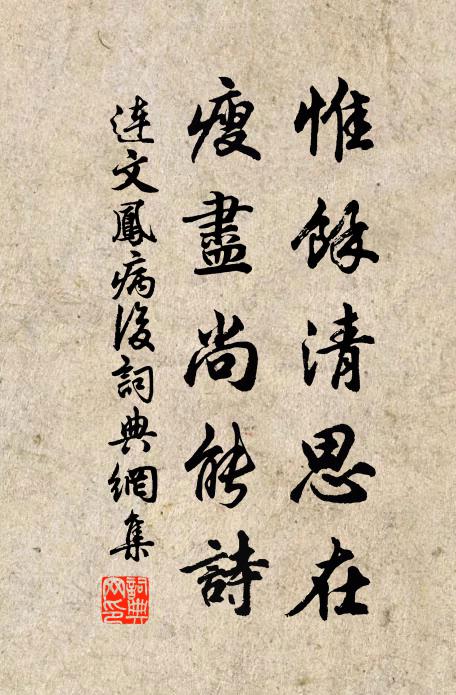 惟餘清思在
瘦盡尚能詩
連文鳳病後詞典網集
詞典網印